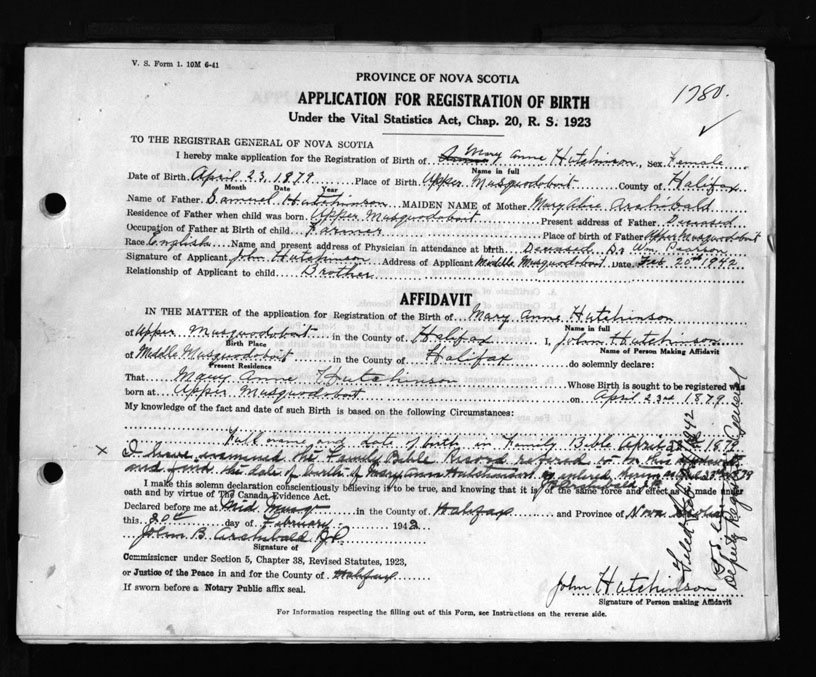 V. S. Form 1. 10M 6-41
PROVINCE OF NOVA SCOTIA
1780.
APPLICATION FOR REGISTRATION OF BIRTH
Under the Vital Statistics Act, Chap. 20, R. S. 1923
TO THE REGISTRAR GENERAL OF NOVA SCOTIA
I hereby make application for the Registration of Birth of Mary Anne Hutchinson, Sex Female
Name in full
Date of Birth April 23, 1879 Place of Birth Upper Musquodoboit County of Halifax
Month Date Year
Name of Father Samuel Hutchinson MAIDEN NAME of Mother Mary Archibald
Residence of Father when child was born Upper Musquodoboit Present address of Father Deceased
Occupation of Father at Birth of child Farmer Place of Birth of Father Upper Musquodoboit
Race English Name and present address of Physician in attendance at birth Deceased Dr Wm.
Signature of Applicant John Hutchinson Address of Applicant Middle Musquodoboit Date Feb. 20th 1942
Relationship of Applicant to child Brother
AFFIDAVIT
IN THE MATTER of the application for Registration of the Birth of Mary Anne Hutchinson
Name in full
of Upper Musquodoboit in the County of Halifax I, John Hutchinson
Birth Place Name of Person Making Affidavit
of Middle Musquodoboit in the County of Halifax do solemnly declare:
Present Residence
That Mary Anne Hutchinson Whose Birth is sought to be registered was
born at Upper Musquodoboit on April 23rd 1879
My knowledge of the fact and date of such Birth is based on the following Circumstances:
Full name and date of birth in Family Bible April 23rd 1879
x I have examined the Family Bible Record referred to in this
and find the date of birth of Mary Anne Hutchinson entered
I make this solemn declaration conscientiously believing it to be true, and knowing that it is of the same force and effect as made under
oath and by virtue of The Canada Evidence Act.
Declared before me at Mid. Musqo in the County of Halifax and Province of Nova Scotia
this 20th day of February 1942
John B. Archibald J.P.
Signature of
Commissioner under Section 5, Chapter 38, Revised Statutes, 1923,
or Justice of the Peace in and for the County of Halifax
If sworn before a Notary Public affix seal.
John Hutchinson
Signature of Person making Affidavit
For Information respecting the filling out of this Form, see Instructions on the reverse side.
Filed
Deputy Registrar General